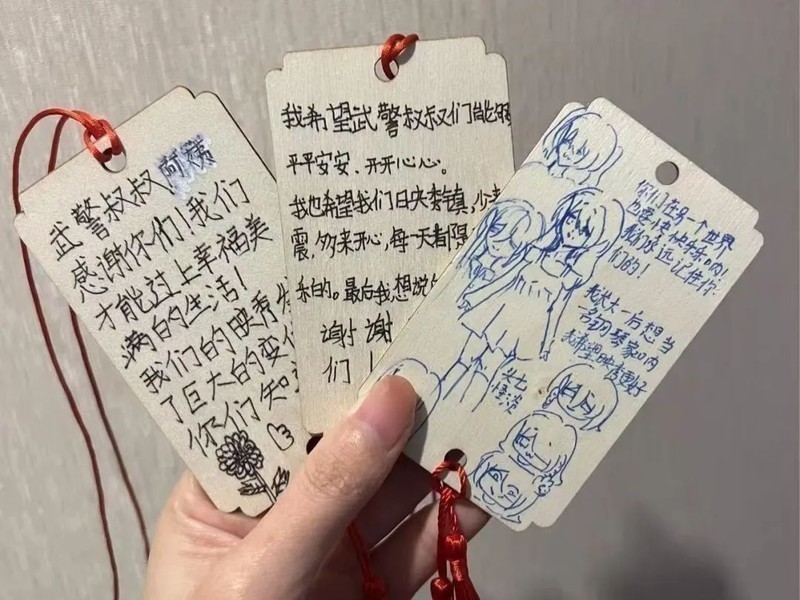 武警叔叔阿姨
感谢你们！我们
才能过上幸福美
满的生活！
我们的映秀
了巨大的变
你们知
我希望武警叔叔们能够
平平安安、开开心心。
我也希望我们日映秀镇,少
震,多来开心,每一天都
的。最后我想说
谢谢
们！
你们在另一个世界
也要快快乐乐
我永远记住你
们的！
我长大后想当
一名钢琴家
我希望映秀更好